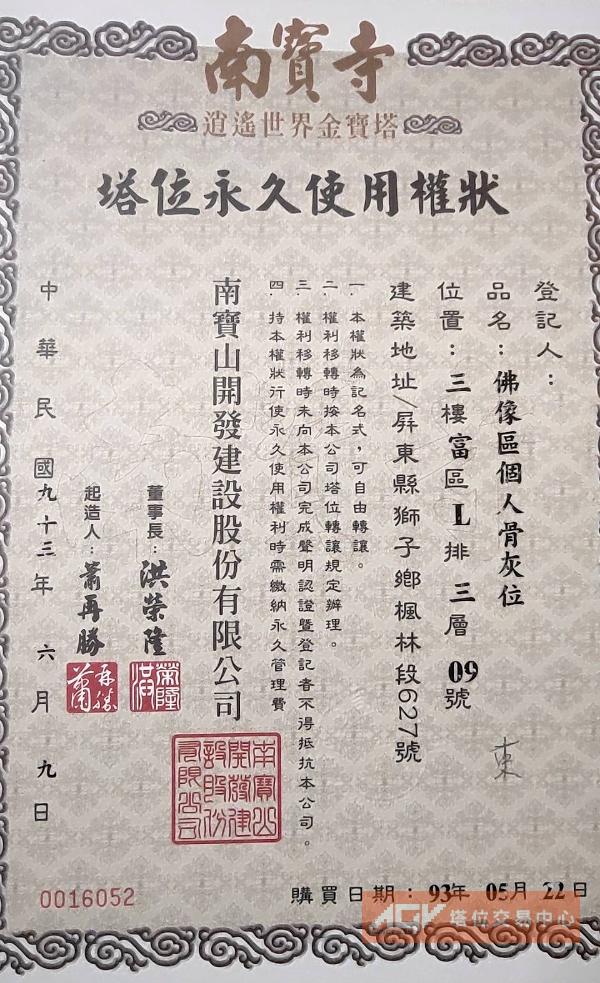 南寶寺
逍遙世界金寶塔
塔位永久使用權狀
登記人：
品名：佛像區個人骨灰位
位置：三樓富區L排三層09號
東
建築地址/屏東縣獅子鄉楓林段627號
一．本權狀為記名式，可自由轉讓。
二．權利移轉時按本公司塔位轉讓規定辦理。
三．權利移轉時未向本公司完成聲明認證暨登記者不得抵抗本公司。
四．持本權狀行使永久使用權利時需繳納永久管理費
南寶山開發建設股份有限公司
南寶山開發建設股份有限公司
董事長：洪榮隆
洪榮隆
起造人：蕭再勝
蕭再勝
中華民國九十三年六月九日
購買日期：93年05月22日
0016052
AGK塔位交易中心